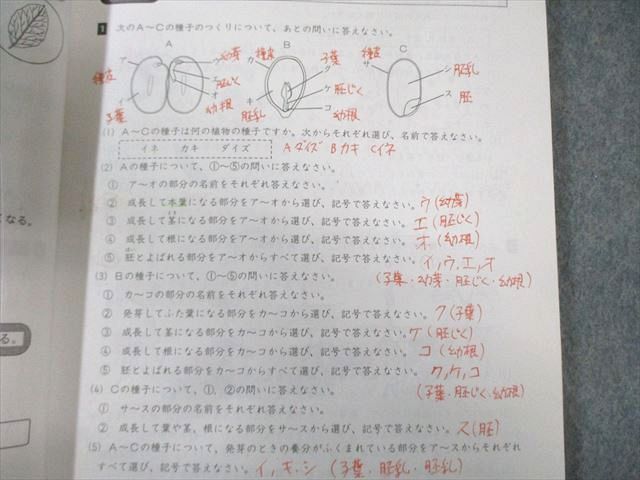 1 次のA～Cの種子のつくりについて、あとの問いに答えなさい。
A B C
ア 種皮 イ 子葉 ウ 幼芽 エ 胚じく オ 幼根
カ 種皮 キ 胚乳 ク 子葉 ケ 胚じく コ 幼根
サ 種皮 シ 胚乳 ス 胚
(1) A～Cの種子は何の植物の種子ですか。次からそれぞれ選び、名前で答えなさい。
イネ カキ ダイズ Aダイズ Bカキ Cイネ
(2) Aの種子について、①～⑤の問いに答えなさい。
① ア～オの部分の名前をそれぞれ答えなさい。
② 成長して本葉になる部分をア～オから選び、記号で答えなさい。ウ(幼芽)
③ 成長して茎になる部分をア～オから選び、記号で答えなさい。エ(胚じく)
④ 成長して根になる部分をア～オから選び、記号で答えなさい。オ(幼根)
⑤ 胚とよばれる部分をア～オからすべて選び、記号で答えなさい。イ,ウ,エ,オ
(子葉・幼芽・胚じく・幼根)
(3) Bの種子について、①～⑤の問いに答えなさい。
① カ～コの部分の名前をそれぞれ答えなさい。
② 発芽してふた葉になる部分をカ～コから選び、記号で答えなさい。ク(子葉)
③ 成長して茎になる部分をカ～コから選び、記号で答えなさい。ケ(胚じく)
④ 成長して根になる部分をカ～コから選び、記号で答えなさい。コ(幼根)
⑤ 胚とよばれる部分をカ～コからすべて選び、記号で答えなさい。ク,ケ,コ
(子葉・胚じく・幼根)
(4) Cの種子について、①、②の問いに答えなさい。
① サ～スの部分の名前をそれぞれ答えなさい。
② 成長して葉や茎、根になる部分をサ～スから選び、記号で答えなさい。ス(胚)
(5) A～Cの種子について、発芽のときの養分がふくまれている部分をア～スからそれぞれ
すべて選び、記号で答えなさい。イ,キ,シ (子葉・胚乳・胚乳)
くなる。
る。